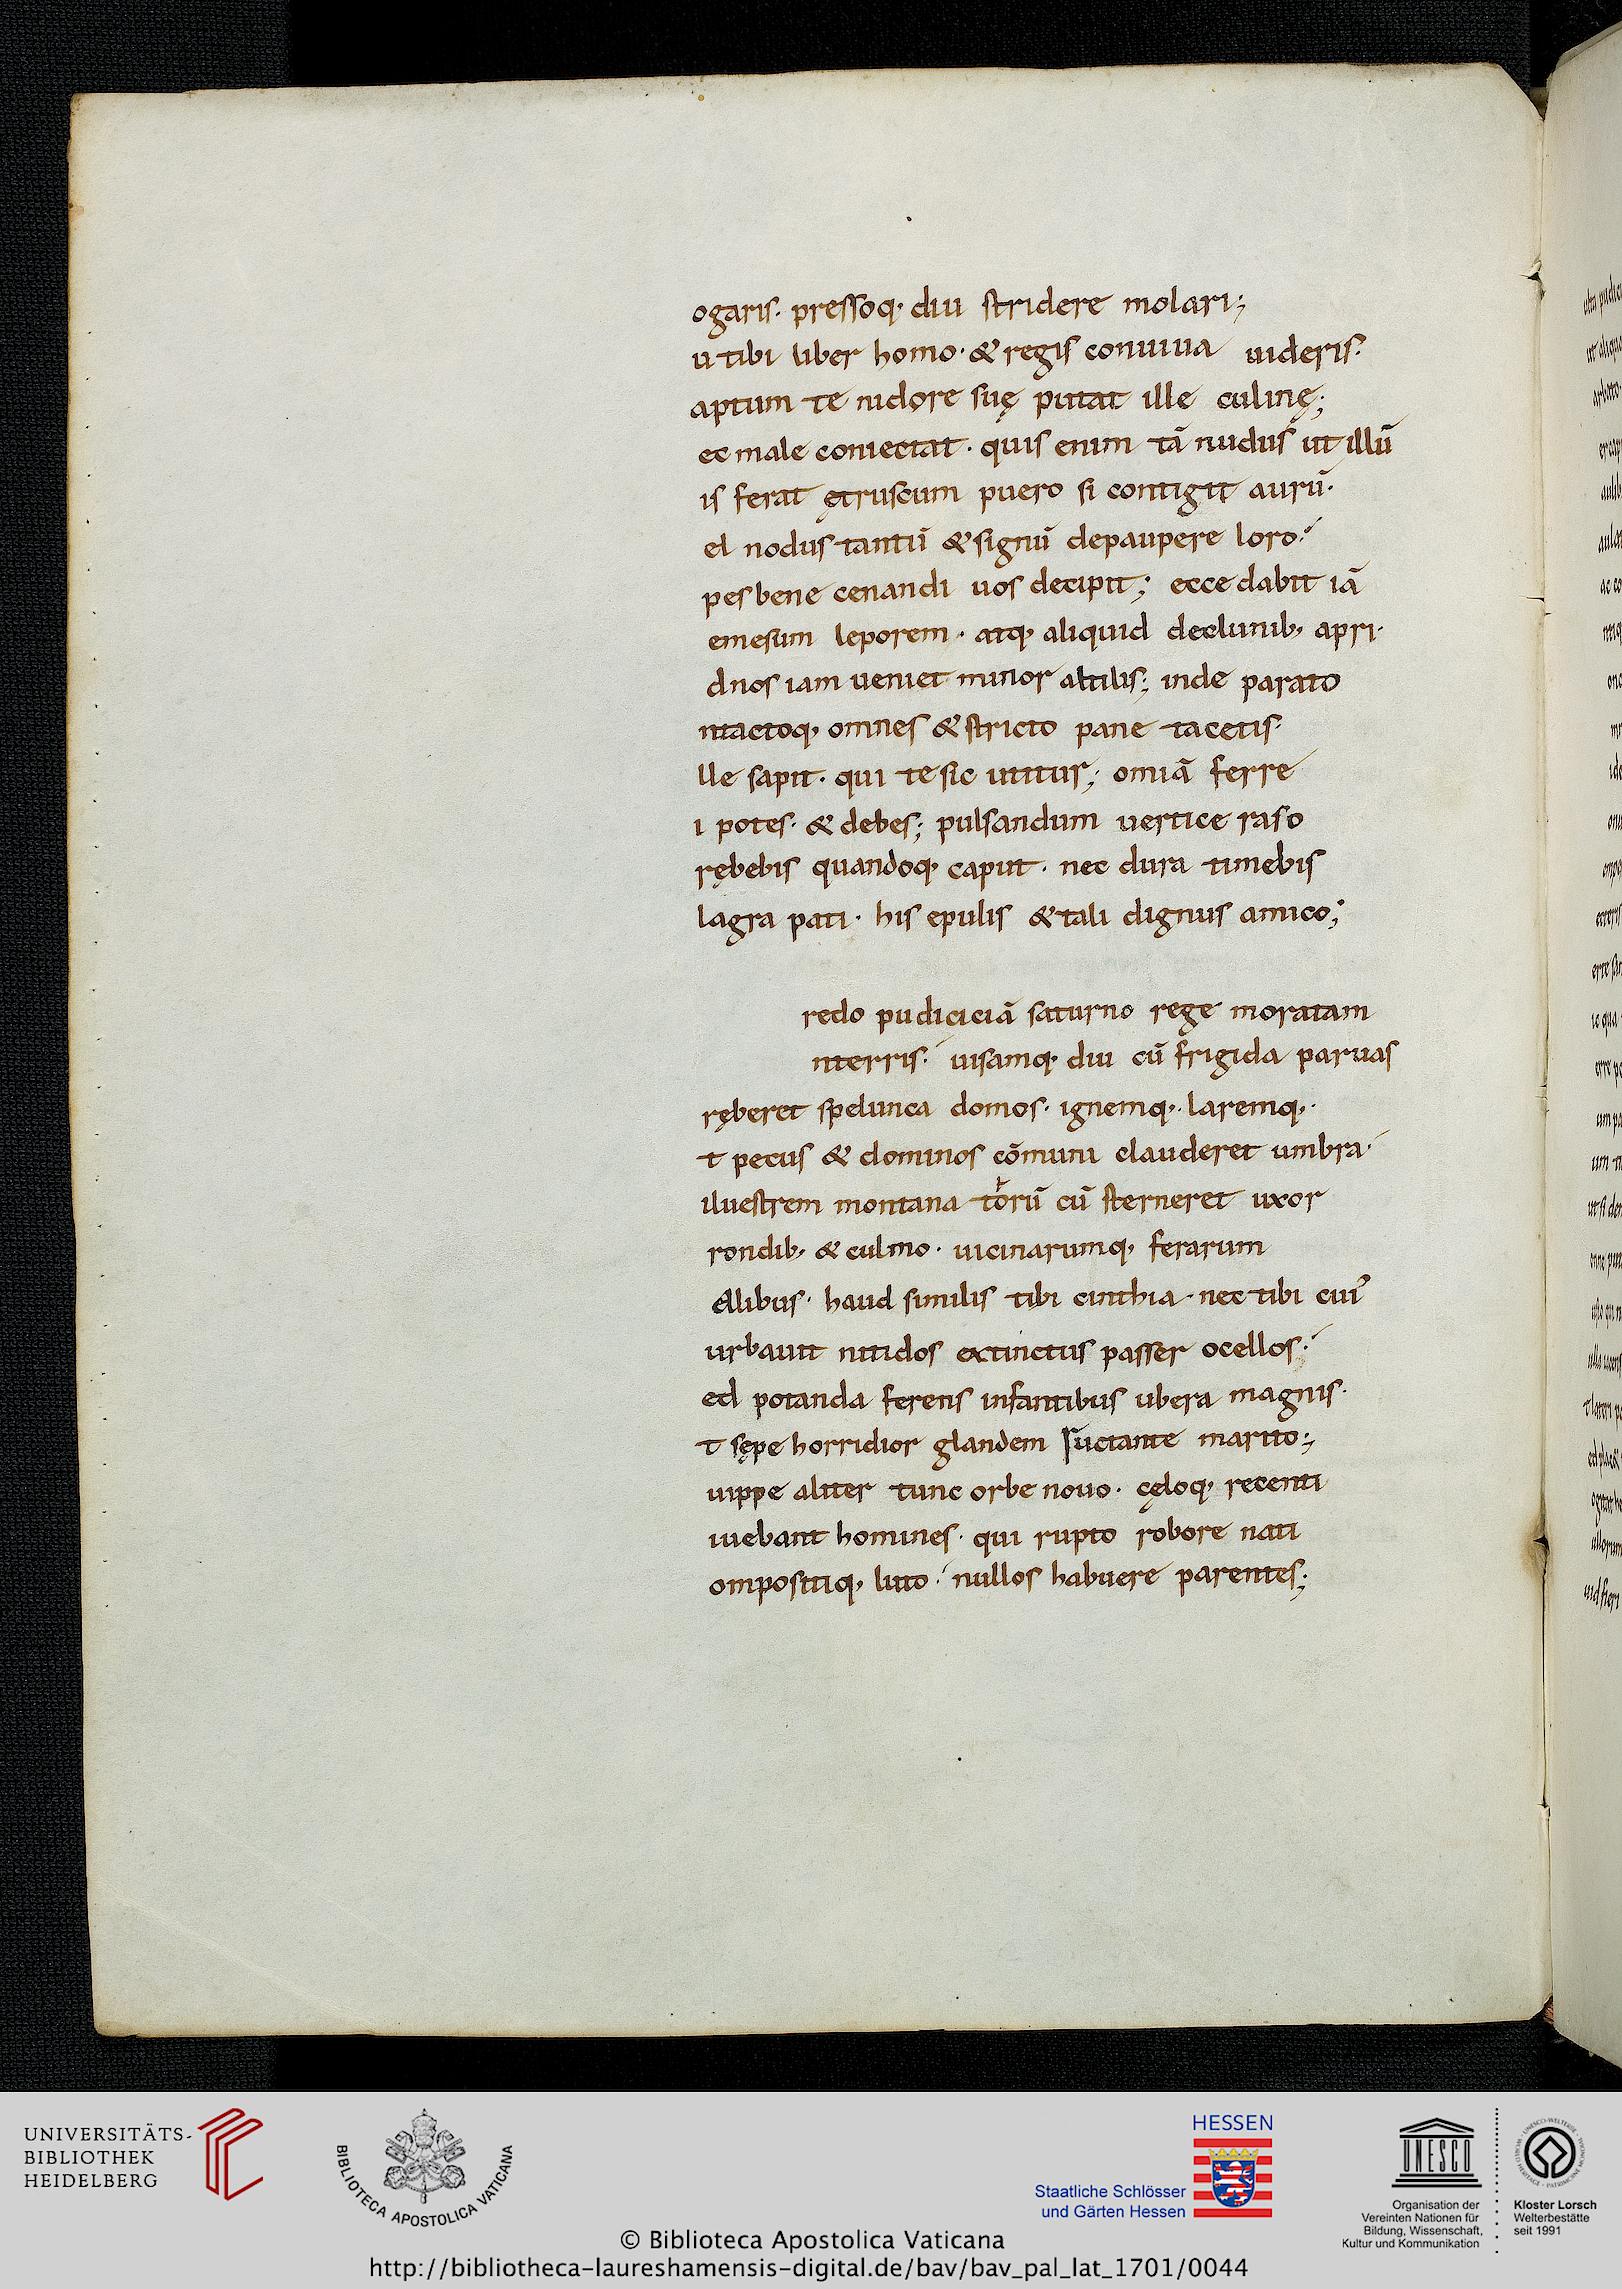 ogaris· pressoq· diu stridere molari;
u tibi liber homo· & regis conuiua uideris·
aptum te nidore suę putat ille culinę;
ec male coniectat· quis enim tā nudus ut illū
is ferat ętruscum puero si contigit aurū·
el nodus tantū & signū depaupere loro·
pes bene cenandi uos decipit; ecce dabit iā
emesum leporem· atq· aliquid declunib, apri·
dnos iam ueniet minor altilis; inde parato
ntactoq· omnes & stricto pane tacetis·
lle sapit· qui te sic utitur; omiā ferre
i potes· & debes; pulsandum uertice raso
rębebis quandoq· caput· nec dura timebis
lagra pati· his epulis & tali dignus amico;
redo pudiciciā saturno rege moratam
nterris· uisamq· diu cū frigida paruas
ręberet spelunca domos· ignemq· laremq·
t pecus & dominos cōmuni clauderet umbra·
iluestrem montana torū cū sterneret uxor
rondib, & culmo· uicinarumq· ferarum
ellibus· haud similis tibi cinthia· nec tibi cuiꝰ
urbauit nitidos extinctus passer ocellos·
ed potanda ferens infantibus ubera magnis·
t sępe horridior glandem ructante marito;
uippe aliter tunc orbe nouo· cęloq· recenti
iuebant homines· qui rupto robore nati
ompositiq· luto· nullos habuere parentes;
UNIVERSITÄTS-
BIBLIOTHEK
HEIDELBERG
BIBLIOTECA APOSTOLICA VATICANA
HESSEN
Staatliche Schlösser
und Gärten Hessen
UNESCO
Organisation der
Vereinten Nationen für
Bildung, Wissenschaft,
Kultur und Kommunikation
Kloster Lorsch
Welterbestätte
seit 1991
© Biblioteca Apostolica Vaticana
http://bibliotheca-laureshamensis-digital.de/bav/bav_pal_lat_1701/0044